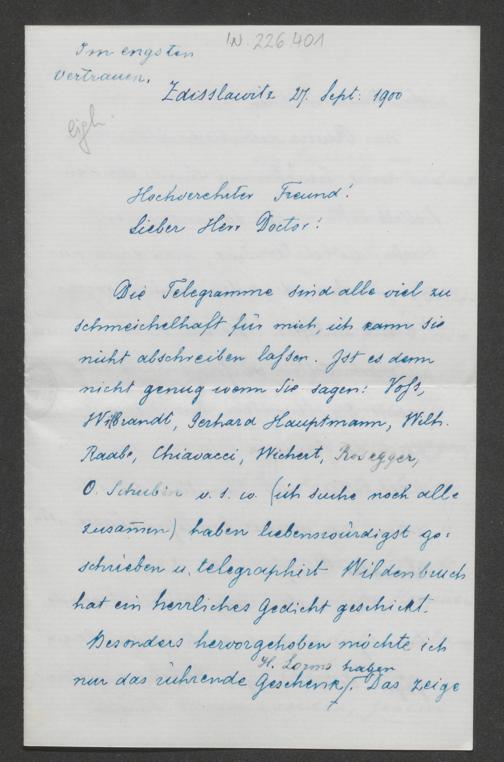 IN. 226 401
Im engsten
Vertrauen.
Zdisslawitz 27. Sept: 1900
eigh.
Hochverehrter Freund!
Lieber Herr Doctor!
Die Telegramme sind alle viel zu
schmeichelhaft für mich, ich kann sie
nicht abschreiben laſsen. Ist es denn
nicht genug wenn Sie sagen: Voſs,
Wilbrandt, Gerhard Hauptmann, Wilh.
Raabe, Chiavacci, Wichert, Rosegger,
O. Schubin u. s. w. (ich suche noch alle
zusam̄en) haben liebenswürdigst ge-
schrieben u. telegraphirt Wildenbruch
hat ein herrliches Gedicht geschickt.
Besonders hervorgehoben möchte ich
H. Lorms haben
nur das rührende Geschenk. Das zeige